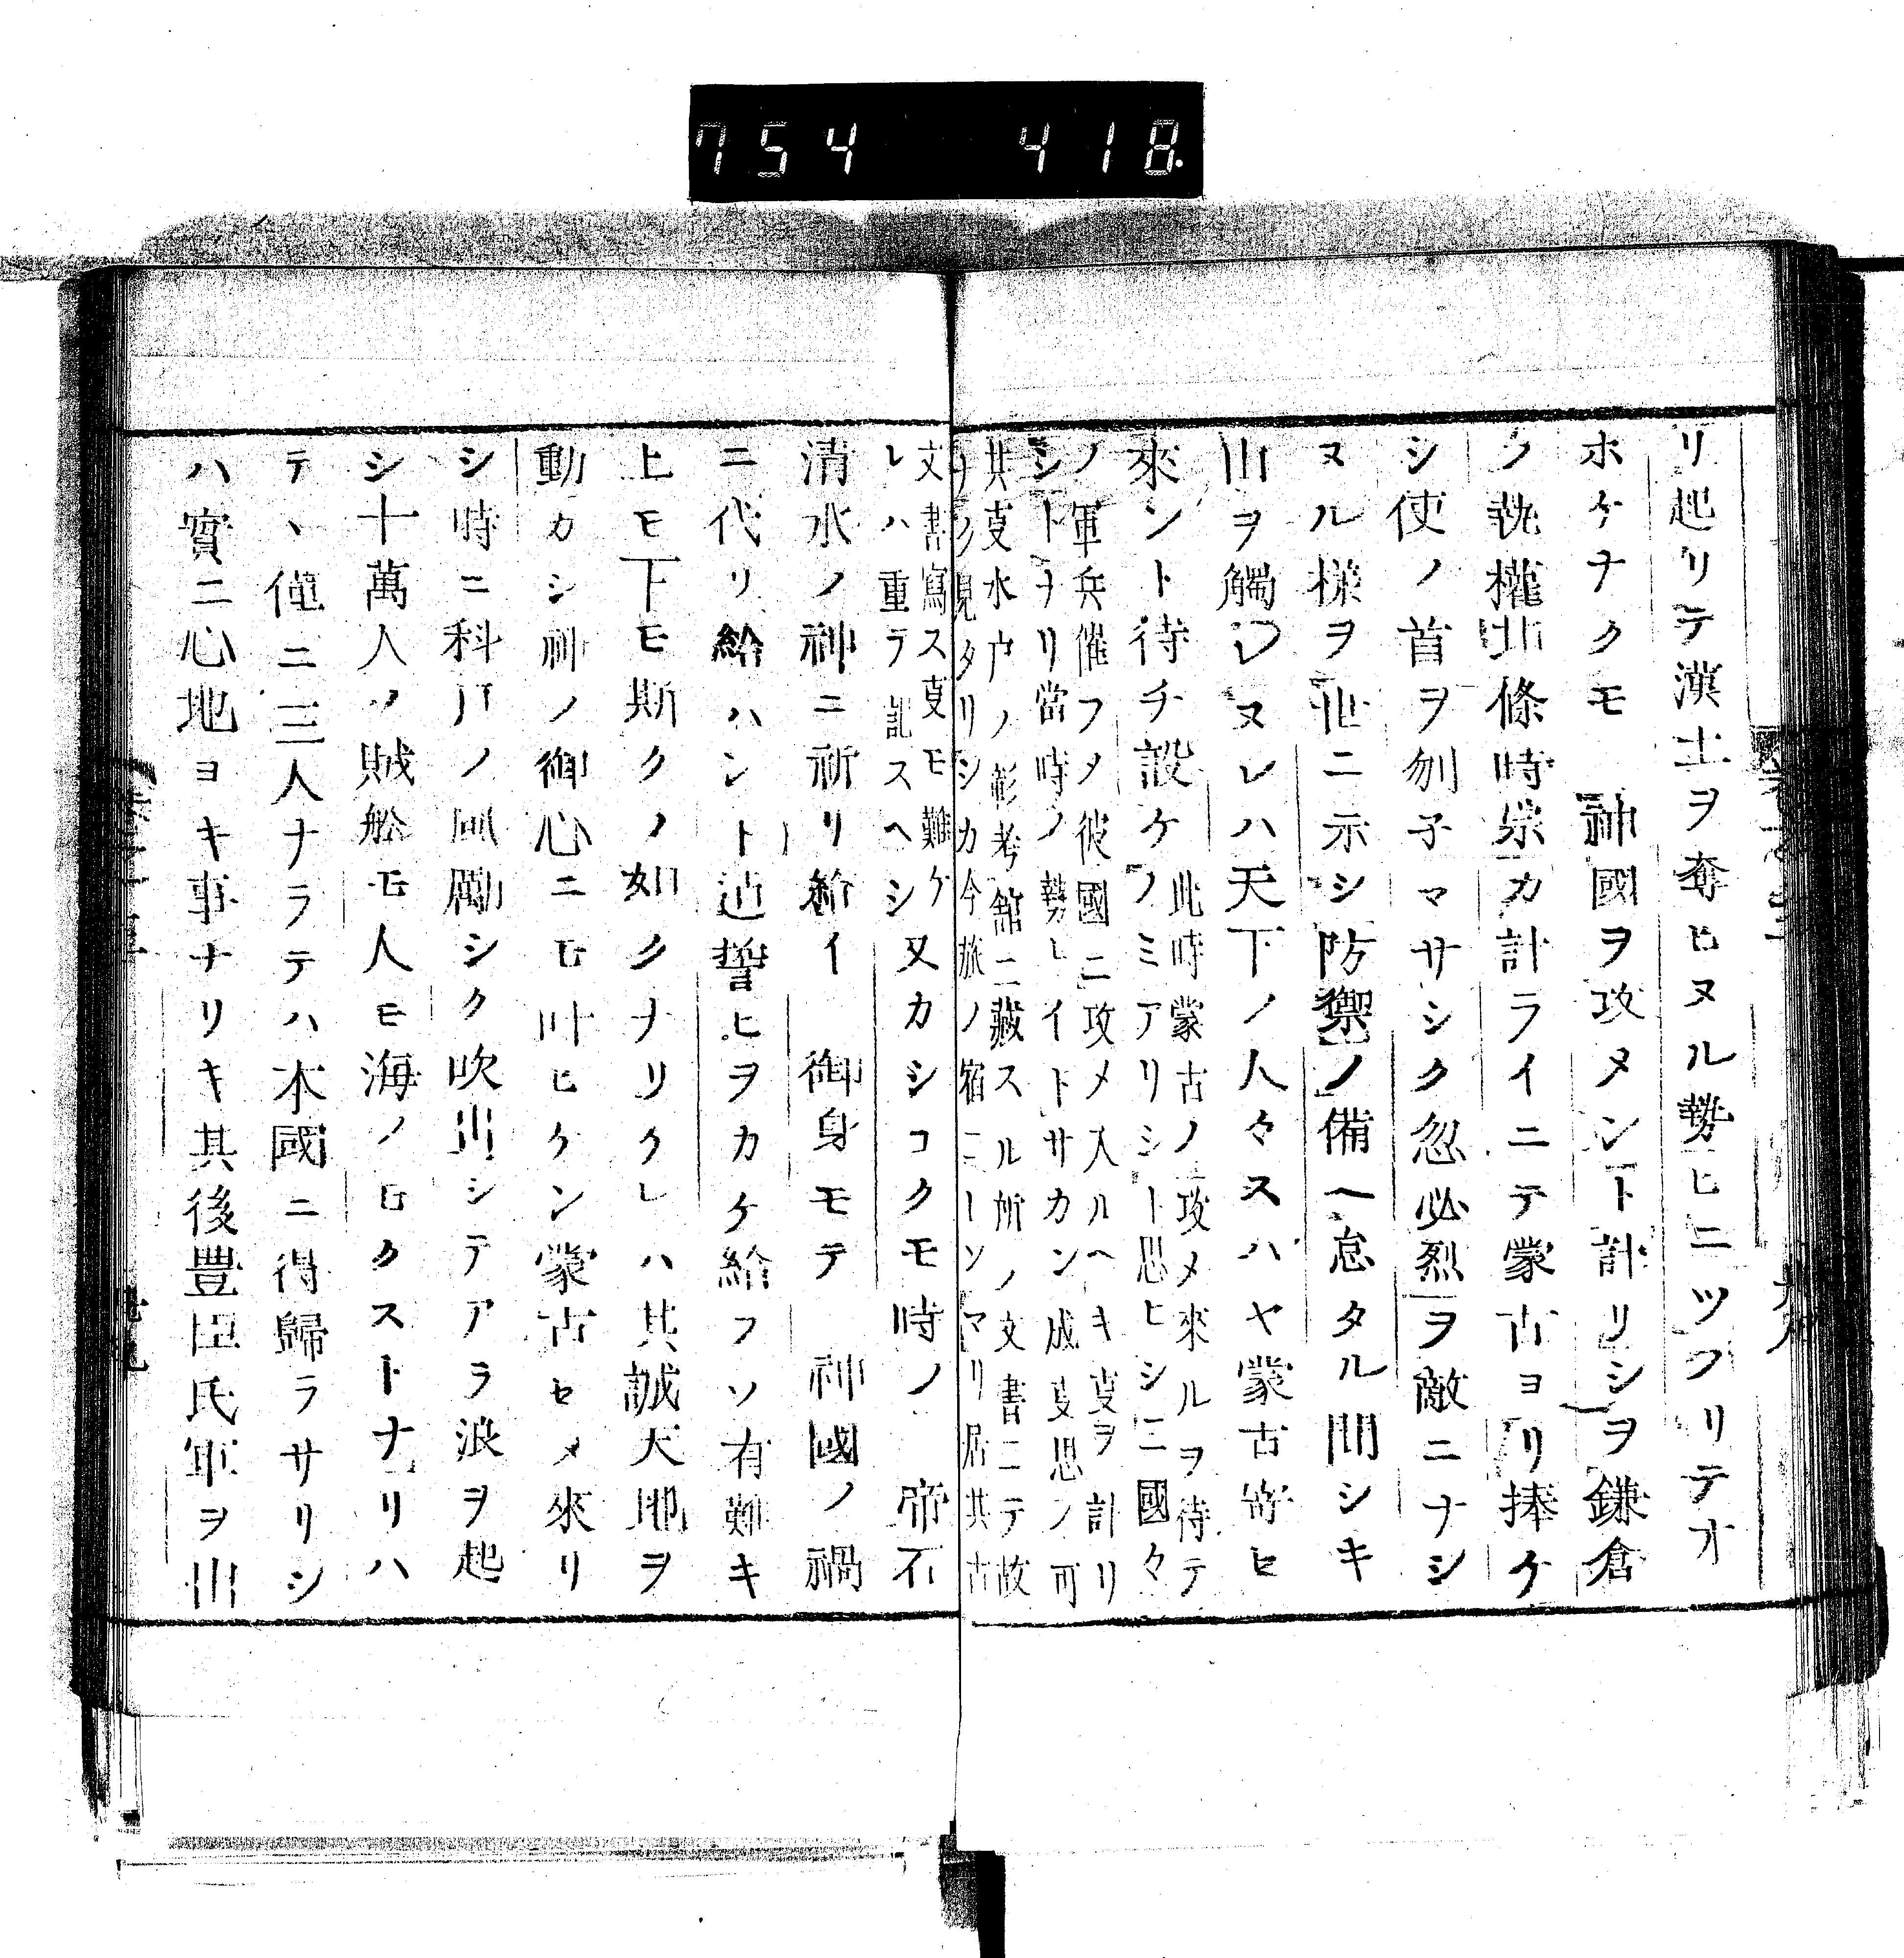 754 418
リ起リテ漢土ヲ奪ヒヌル勢ヒニツノリテオ
ホケナクモ 神國ヲ攻メント計リシヲ鎌倉
ノ執權北條時宗カ計ライニテ蒙古ヨリ捧ケ
シ使ノ首ヲ刎子マサシク忽必烈ヲ敵ニナシ
ヌル様ヲ世ニ示シ防禦ノ備ヘ怠タル間シキ
由ヲ觸レヌレハ天下ノ人々スハヤ蒙古寄ヒ
來ント待チ設ケ
此時蒙古ノ攻メ來ルヲ待テ
ノミアリシト思ヒシニ國々
ノ軍兵催フメ彼國ニ攻メ入ルヘキ叓ヲ計リ
シトヲリ當時ノ勢ヒイトサカン成叓思ノ可
其叓水户ノ彰考舘ニ藏スル所ノ文書ニテ故
アリ見タリシカ今旅ノ宿ニーソマリ居其古
文書寫ス叓モ難ケ
レハ重ラ記スヘシ
又カシコクモ時ノ 帝石
清水ノ神ニ祈リ給イ 御身モテ 神國ノ禍
ニ代リ給ハント迠誓ヒヲカケ給フソ有難キ
上モ下モ斯クノ如クナリクレハ其誠天地ヲ
動カシ神ノ御心ニモ叶ヒケン蒙古セメ來リ
シ時ニ科戸ノ風勵シク吹出シテアラ浪ヲ起
シ十萬人ノ賊舩モ人モ海ノモクストナリハ
テヽ僅ニ三人ナラテハ本國ニ得歸ラサリシ
ハ實ニ心地ヨキ事ナリキ其後豊臣氏軍ヲ出